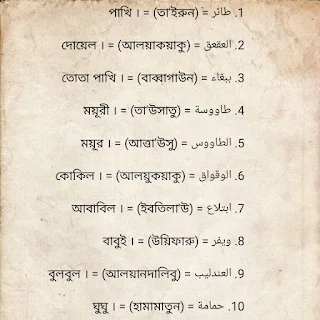 পাখি । = (তা'ইরুন) = طائر .1
দোয়েল । = (আলয়াকয়াকু) = العقعق .2
তোতা পাখি । = (বাব্বাগাউন) = ببغاء .3
ময়ূরী । = (তা'উসাতু) = طاووسة .4
ময়ূর । = (আত্তা'উসু) = الطاووس .5
কোকিল । = (আলয়ুকয়াকু) = الوقواق .6
আবাবিল । = (ইবতিলা'উ) = ابتلاع .7
বাবুই । = (উয়িফারু) = ويفر .8
বুলবুল । = (আলয়ানদালিবু) = العندليب .9
ঘুঘু । = (হামামাতুন) = حمامة .10